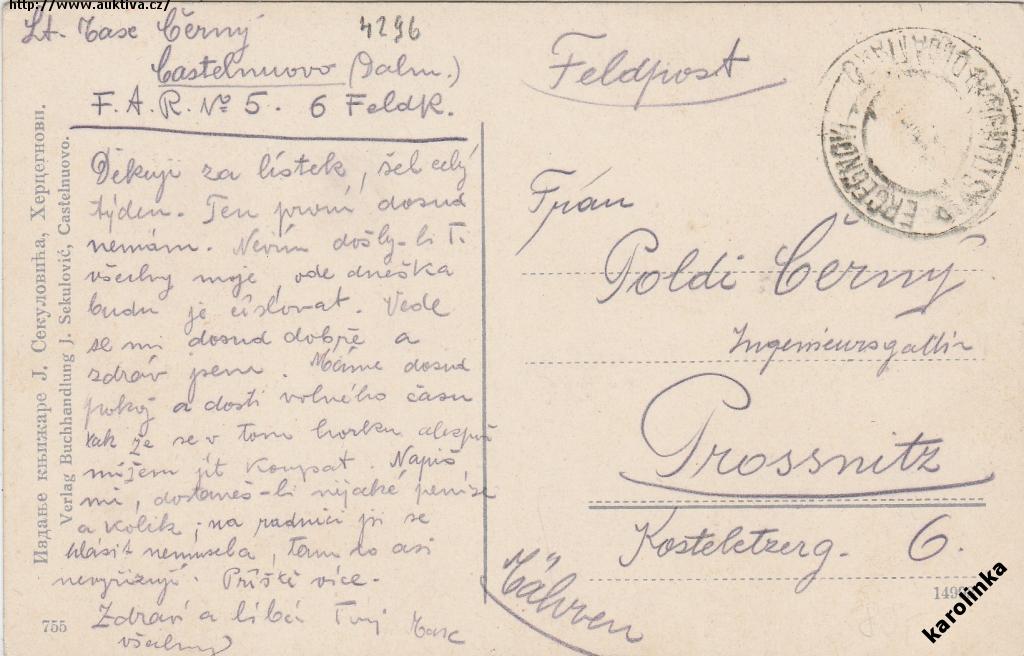 http://www.auktiva.cz/
Lt. Max Černý
Castelnuovo (Dalm.)
F.A.R. № 5. 6 Feldk.
4296
Feldpost
ERCEGNOVI
Děkuji za lístek, šel celý
týden. Ten první dosud
nemám. Nevím došly-li Ti
všechny moje, ode dneška
budu je číslovat. Vede
se mi dosud dobře a
zdráv jsem. Máme dosud
pokoj a dosti volného času
tak že se v tom horku alespoň
můžem jít koupat. Napiš
mi, dostaneš-li nějaké peníze
a kolik, na radnici jsi se
hlásit nemusela, tam to asi
nevyřizují. Příště více.
Zdraví a líbá Tvůj Max
všechny
Frau
Poldi Černý
Ingenieursgattin
Prossnitz
Kosteletzerg. 6.
Mähren
Издање књижаре Ј. Секуловића, Херцегнови.
Verlag Buchhandlung J. Sekulović, Castelnuovo.
755
karolinka